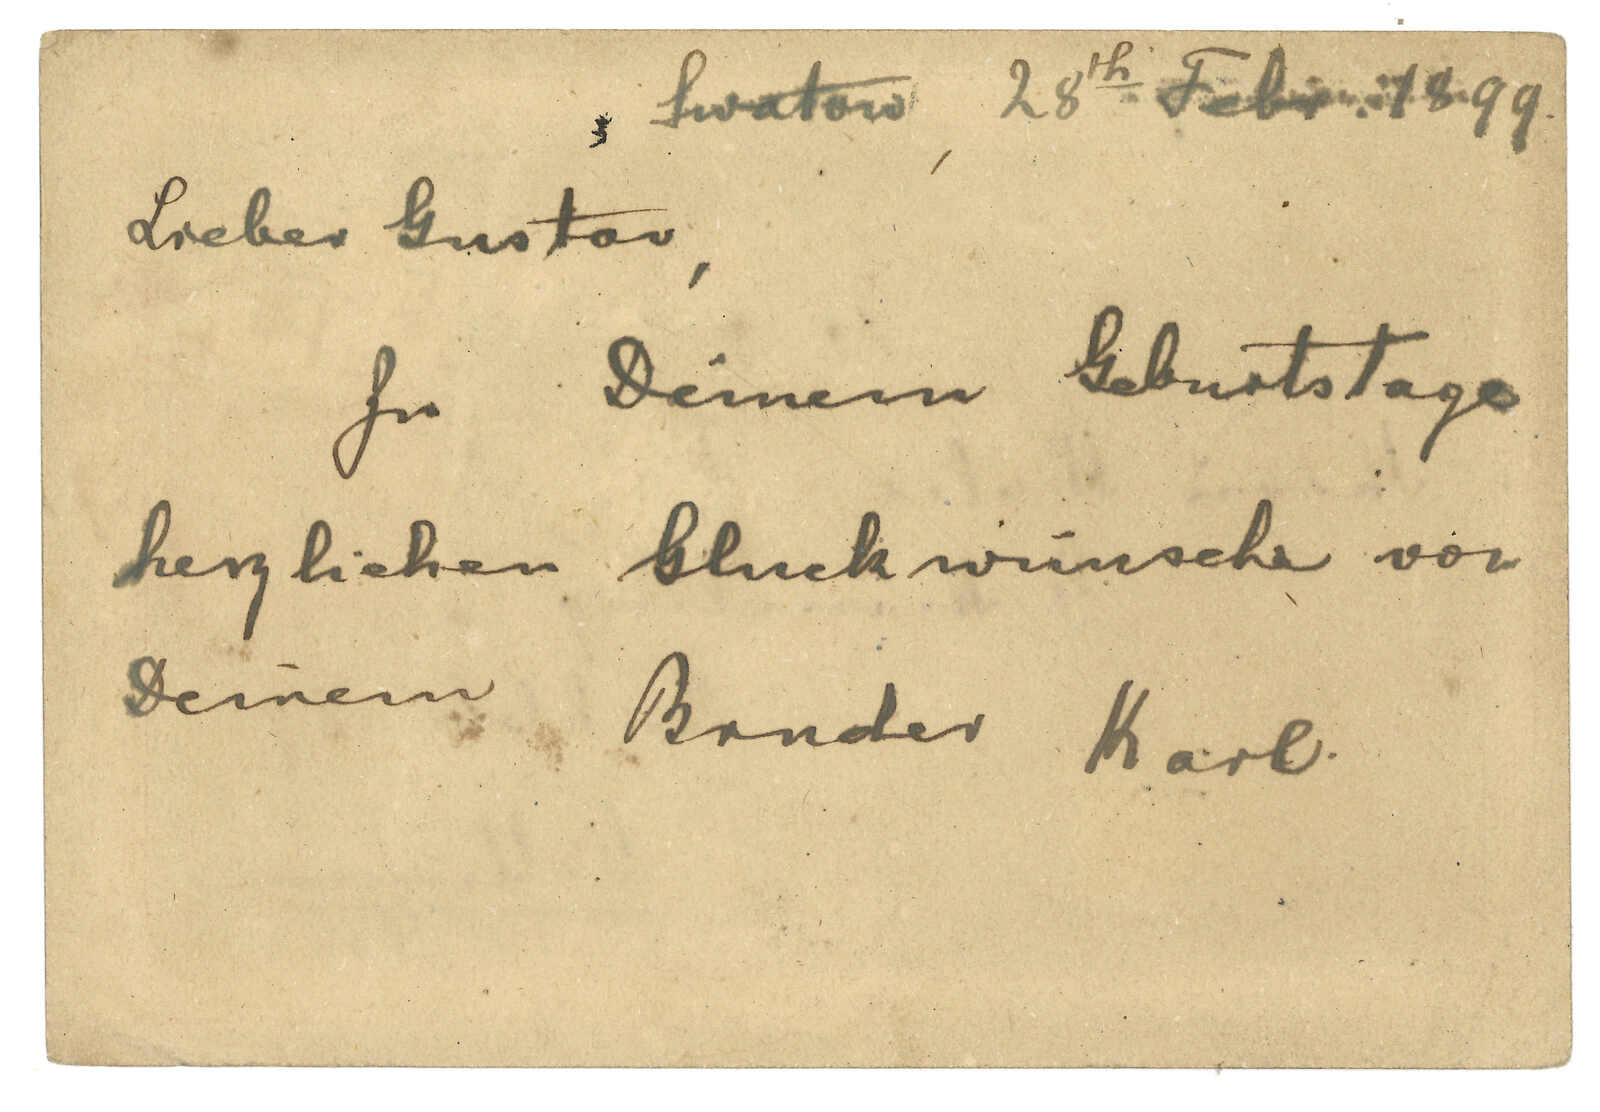 Swatow, 28th Febr. 1899.
Lieber Gustav,
Zu Deinem Geburtstage
herzlichen Gluckwünsche von
Deinem Bruder Karl.